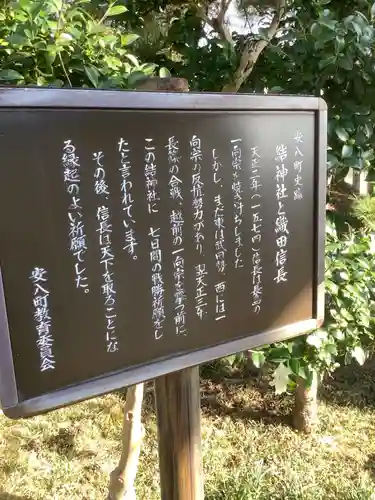 安八町史跡
結神社と織田信長
天正二年(一五七四)信長は長島の
一向宗を焼き討ちしました
しかし、まだ東は武田勢、西には一
向宗の反信勢力があり、翌天正三年、
長篠の合戦、越前の一向宗を撃つ前に、
この結神社に七日間の戦勝祈願をし
たと言われています。
その後、信長は天下を取ることにな
る縁起のよい祈願でした。
安八町教育委員会